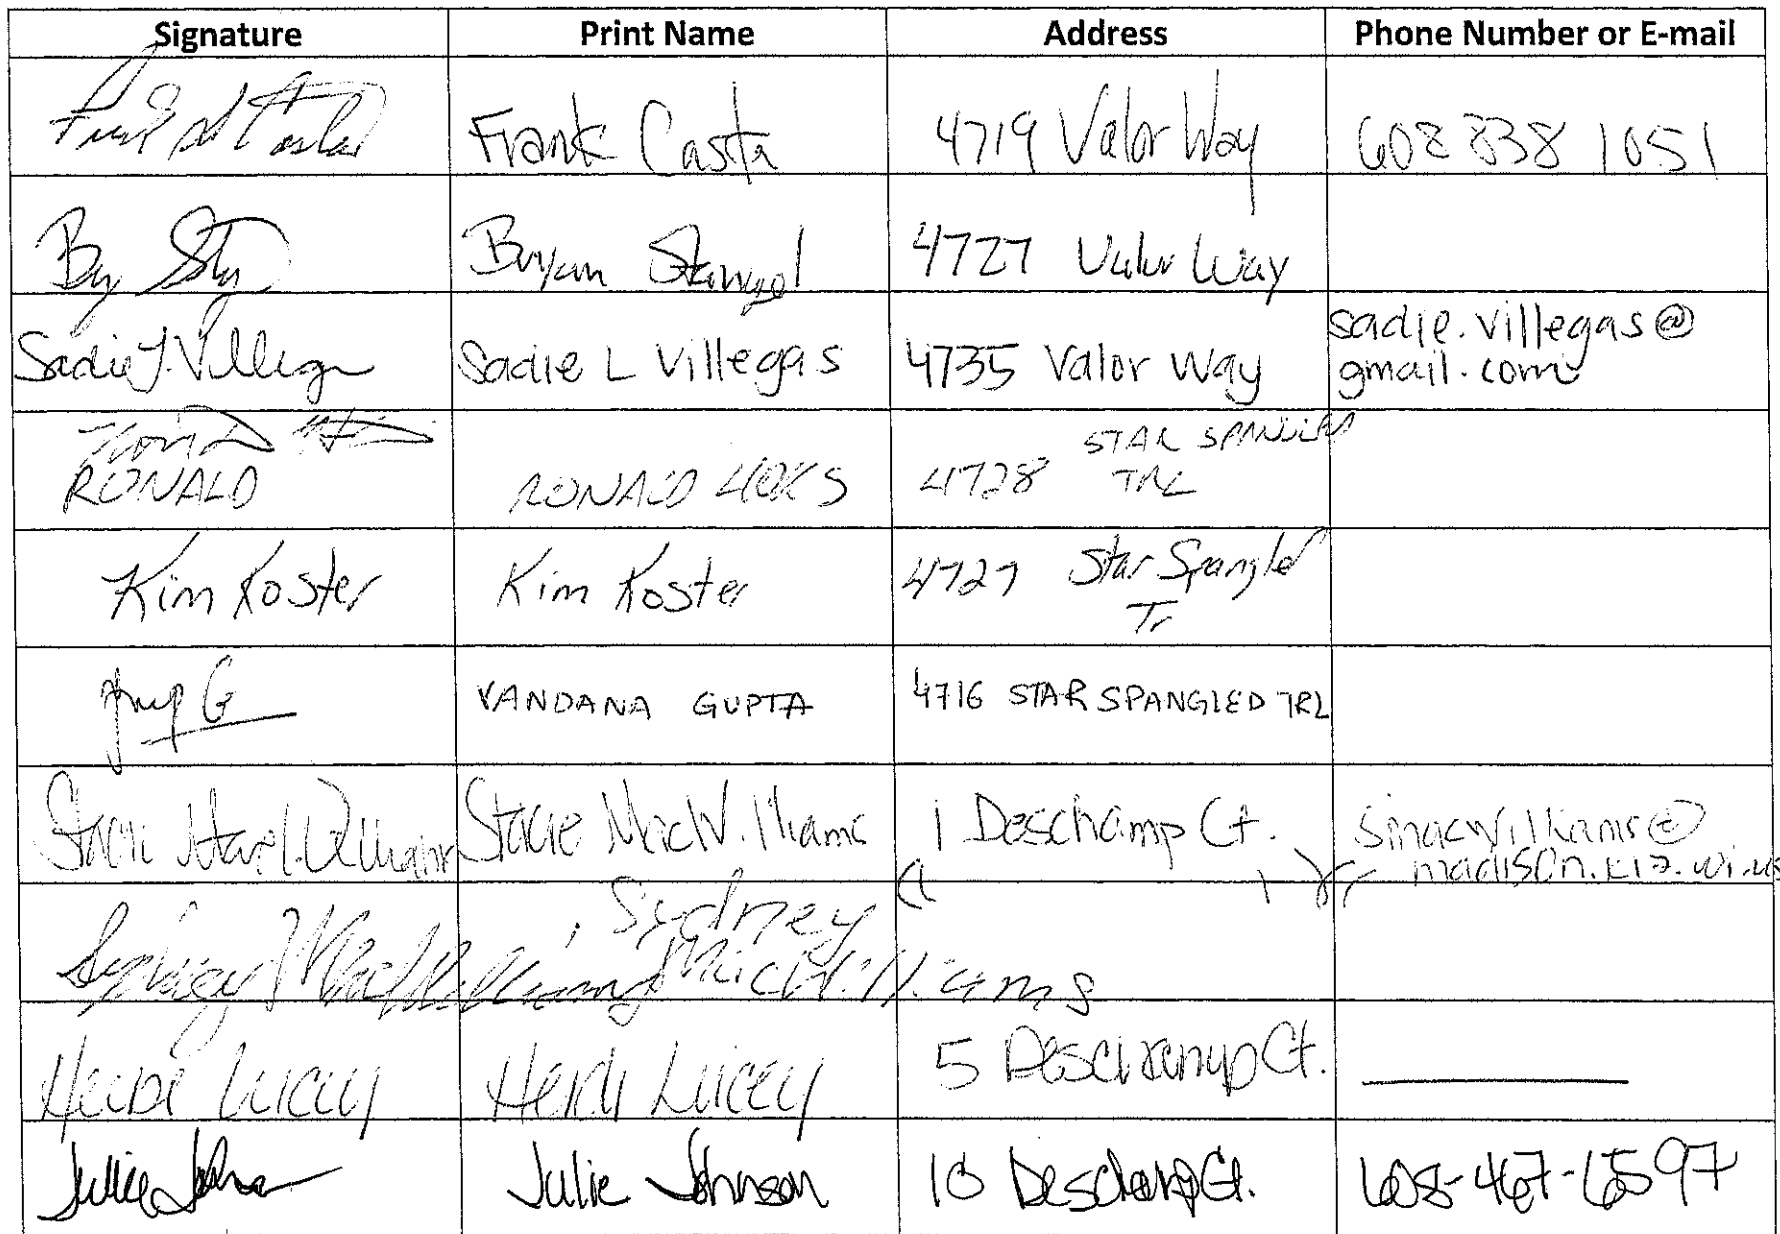 Signature Print Name Address Phone Number or E-mail
Frank Casta 4719 Valor Way 608 838 1051
Bryan Stangel 4727 Valor Way
Sadie L. Villegas Sadie L Villegas 4735 Valor Way sadie.villegas@
gmail.com
STAR SPANGLED
RONALD RONALD 4728 TRL
Kim Koster Kim Koster 4727 Star Spangled
Tr
VANDANA GUPTA 4716 STAR SPANGLED TRL
Stacie MacWilliams Stacie MacWilliams 1 Deschamp Ct. smacwilliams@
madison.k12.wi.us
Sydney
Sydney MacWilliams MacWilliams
Heidi Lucey Heidi Lucey 5 Deschamp Ct.
Julie Johnson Julie Johnson 10 Deschamp Ct. 608-467-6597